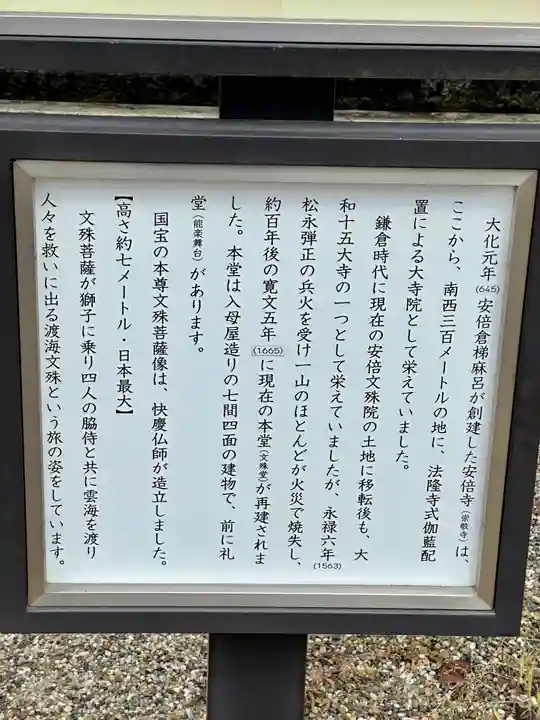 大化元年(645)安倍倉梯麻呂が創建した安倍寺(崇敬寺)は、
ここから、南西三百メートルの地に、法隆寺式伽藍配
置による大寺院として栄えていました。
鎌倉時代に現在の安倍文殊院の土地に移転後も、大
和十五大寺の一つとして栄えていましたが、永禄六年(1563)
松永弾正の兵火を受け一山のほとんどが火災で焼失し、
約百年後の寛文五年(1665)に現在の本堂(文殊堂)が再建されま
した。本堂は入母屋造りの七間四面の建物で、前に礼
堂(能楽舞台)があります。
国宝の本尊文殊菩薩像は、快慶仏師が造立しました。
【高さ約七メートル・日本最大】
文殊菩薩が獅子に乗り四人の脇侍と共に雲海を渡り
人々を救いに出る渡海文殊という旅の姿をしています。